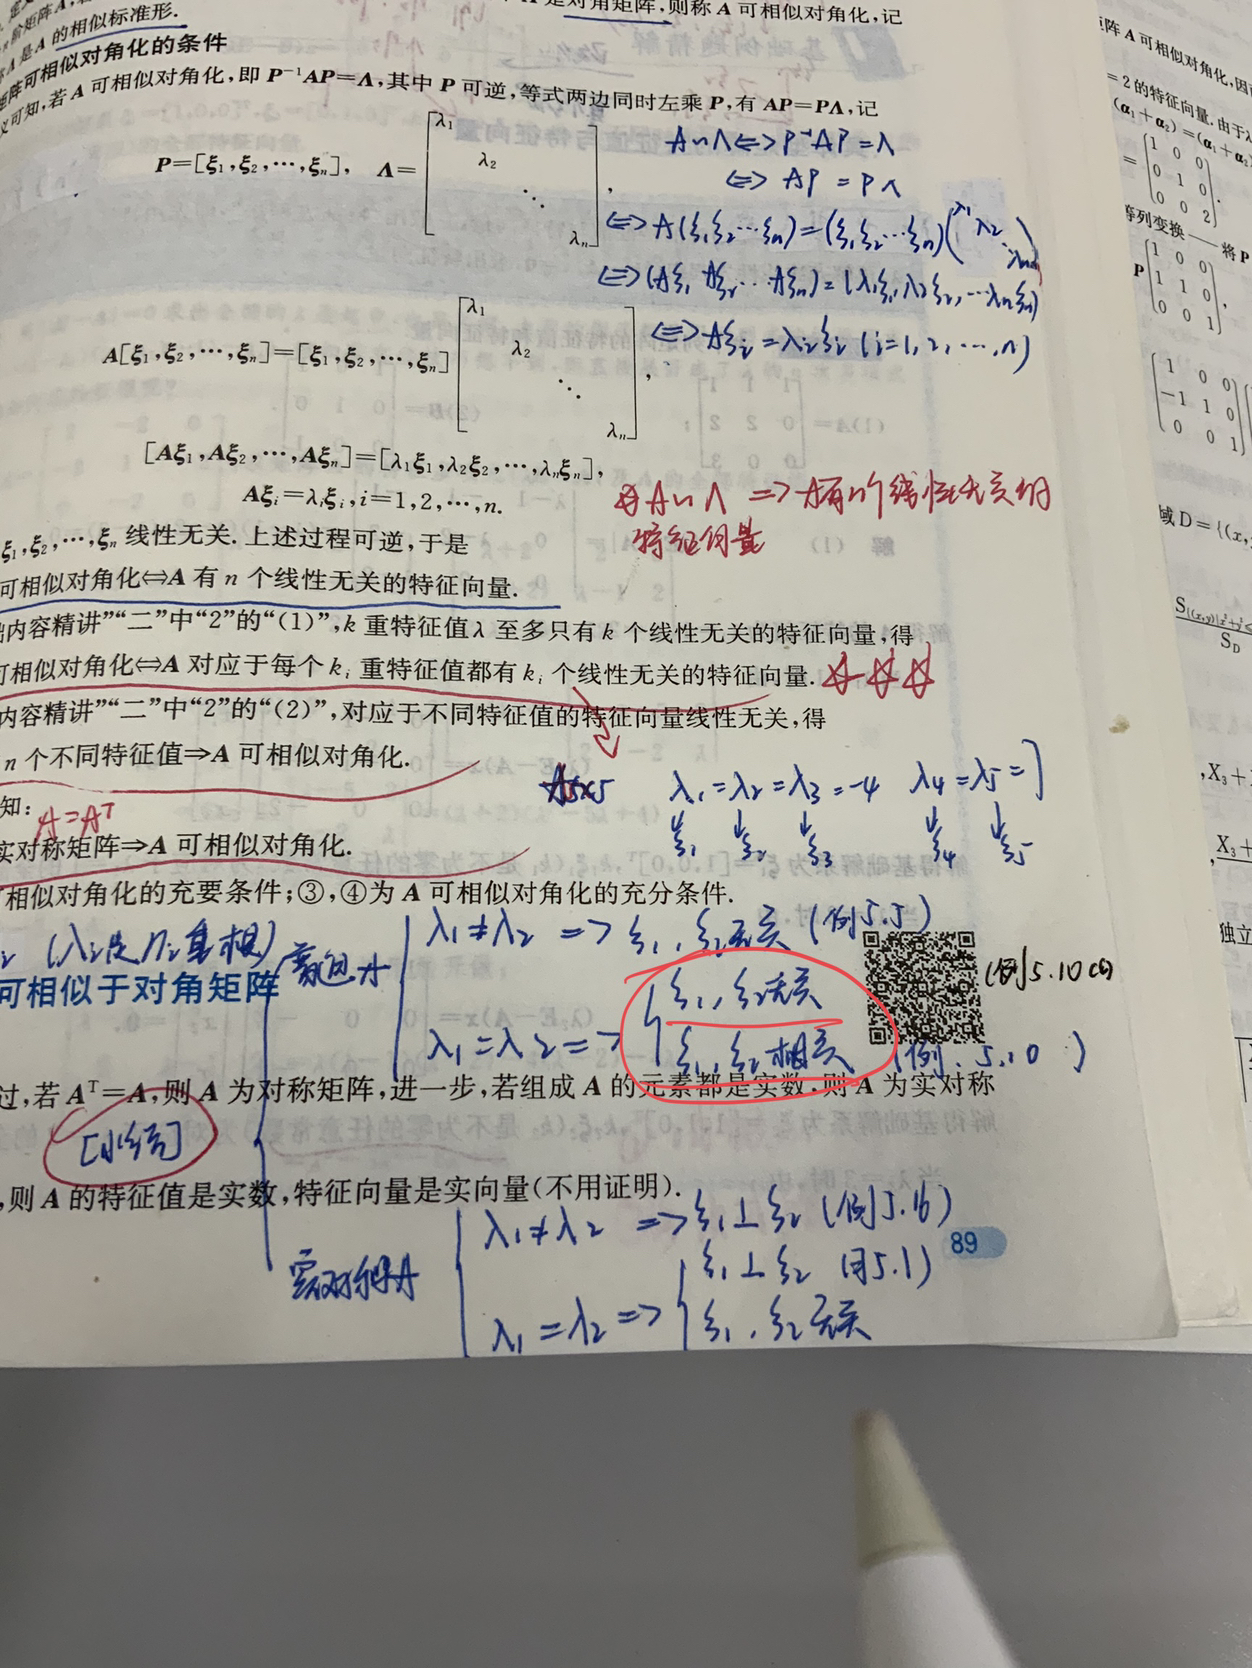 是对角矩阵,则称 A 可相似对角化,记
阶矩阵A
A 是 A 的相似标准形.
矩阵可相似对角化的条件
义可知,若 A 可相似对角化,即 P⁻¹AP=Λ,其中 P 可逆,等式两边同时左乘 P,有 AP=PΛ,记
P=[ξ₁,ξ₂,…,ξₙ], Λ=[λ₁ λ₂ ⋱ λₙ],
A∽Λ⇔P⁻¹AP=Λ
⇔ AP = PΛ
⇔A(ξ₁ξ₂…ξₙ)=(ξ₁ξ₂…ξₙ)(λ₁ λ₂ ⋱ λₙ)
⇔(Aξ₁ Aξ₂…Aξₙ)=(λ₁ξ₁,λ₂ξ₂,…λₙξₙ)
A[ξ₁,ξ₂,…,ξₙ]=[ξ₁,ξ₂,…,ξₙ][λ₁ λ₂ ⋱ λₙ],
⇔Aξᵢ=λᵢξᵢ (i=1,2,…,n)
[Aξ₁,Aξ₂,…,Aξₙ]=[λ₁ξ₁,λ₂ξ₂,…,λₙξₙ],
Aξᵢ=λᵢξᵢ,i=1,2,…,n.
A∽Λ ⇒A有n个线性无关的
特征向量
ξ₁,ξ₂,…,ξₙ 线性无关.上述过程可逆,于是
可相似对角化⇔A 有 n 个线性无关的特征向量.
础内容精讲”“二”中“2”的“(1)”,k 重特征值 λ 至多只有 k 个线性无关的特征向量,得
可相似对角化⇔A 对应于每个 kᵢ 重特征值都有 kᵢ 个线性无关的特征向量.
内容精讲”“二”中“2”的“(2)”,对应于不同特征值的特征向量线性无关,得
n 个不同特征值⇒A 可相似对角化.
A₅ₓ₅ λ₁=λ₂=λ₃=-4 λ₄=λ₅=7
↓ξ₁ ↓ξ₂ ↓ξ₃ ↓ξ₄ ↓ξ₅
知:
A=Aᵀ
实对称矩阵⇒A 可相似对角化.
可相似对角化的充要条件;③,④为 A 可相似对角化的充分条件.
(λᵢ是nᵢ重根)
普通A
λ₁≠λ₂ ⇒ ξ₁,ξ₂无关 (例5.5)
可相似于对角矩阵
ξ₁,ξ₂无关
(例5.10
λ₁=λ₂⇒
ξ₁,ξ₂相关
(例.5.10 )
过,若 Aᵀ=A,则 A 为对称矩阵,进一步,若组成 A 的元素都是实数,则 A 为实对称
[小结]
,则 A 的特征值是实数,特征向量是实向量(不用证明).
实对称阵A
λ₁≠λ₂ ⇒ξ₁⊥ξ₂ (例5.16)
89
ξ₁⊥ξ₂
λ₁=λ₂⇒
ξ₁,ξ₂无关
矩阵 A 可相似对角化,因
=2 的特征向量.由于
(α₁+α₂)=(α₁+α₂
=[1 0 0
0 1 0
0 0 2].
等列变换——将 P
P[1 0 0
1 1 0
0 0 1],
[1 0 0
-1 1 0
0 0 1]
域 D={(x,
S_D
,X₃+
X₃+
独立